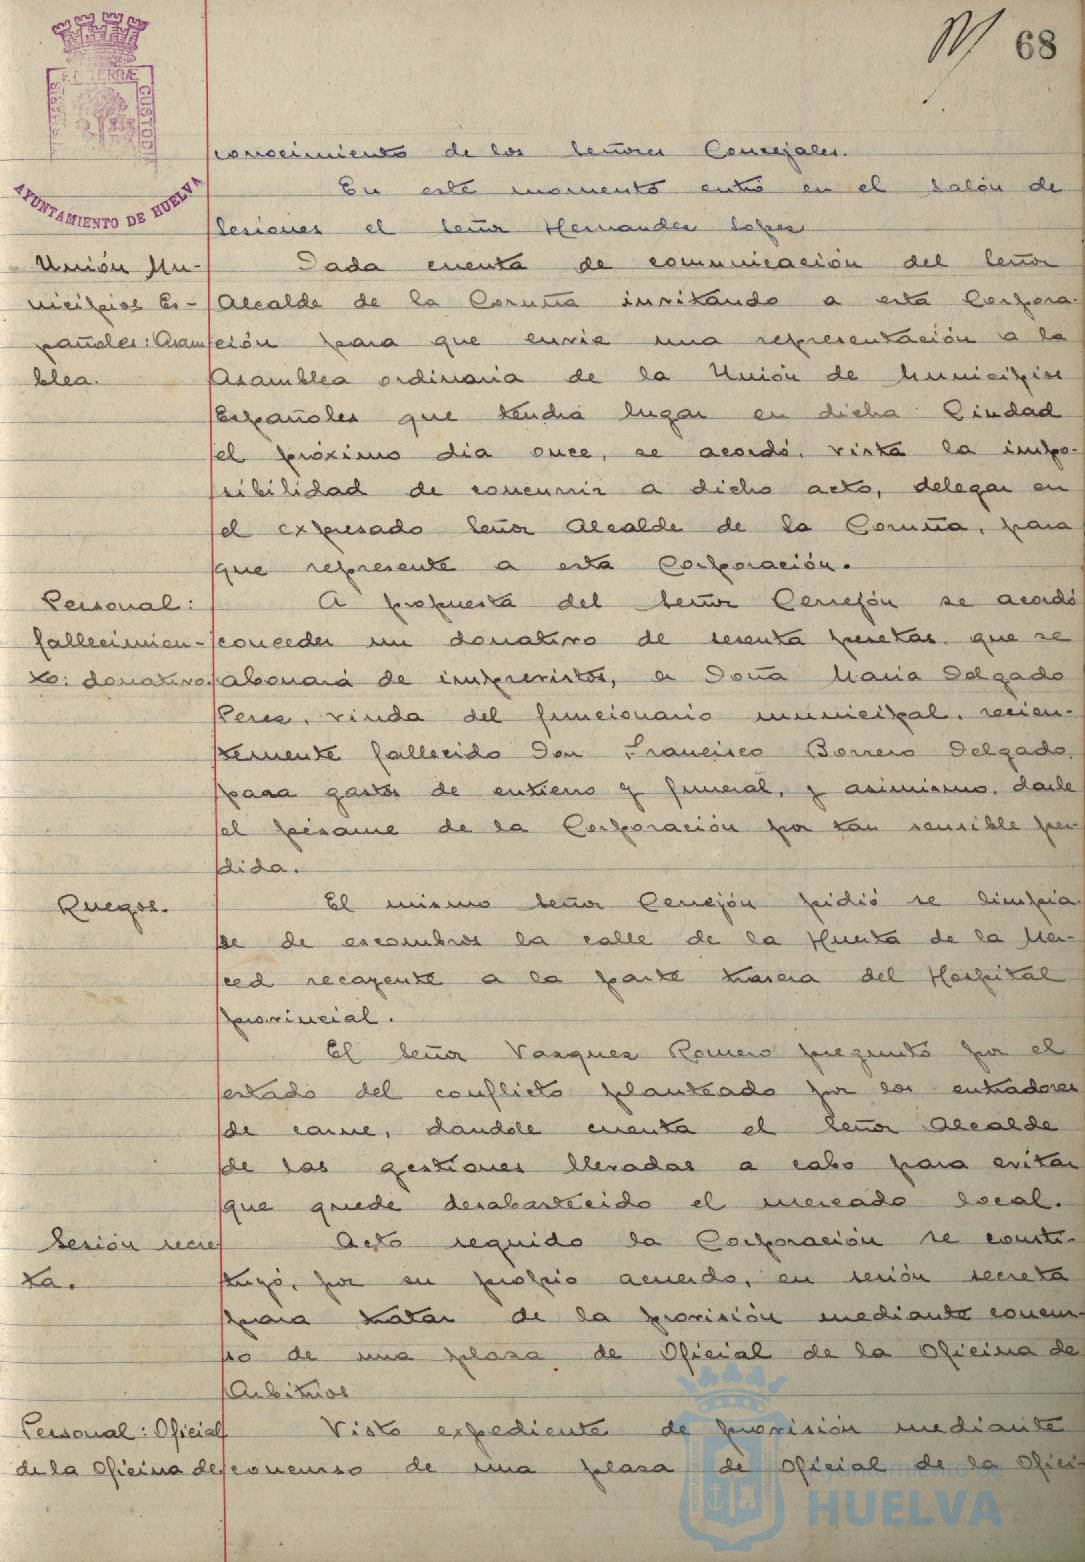 68
PORTUS MARIS ET TERRÆ CUSTODIA
AYUNTAMIENTO DE HUELVA
conocimiento de los Señores Concejales.
En este momento entró en el Salón de
Sesiones el Señor Hernandez Lopez
Unión Mu-
nicipios Es-
pañoles: Asam
blea.
Dada cuenta de comunicación del Señor
Alcalde de la Coruña invitando a esta Corpora-
ción para que envie una representación a la
Asamblea ordinaria de la Unión de Municipios
Españoles que tendrá lugar en dicha Ciudad
el próximo dia once, se acordó, vista la impo-
sibilidad de concurrir a dicho acto, delegar en
el expresado Señor Alcalde de La Coruña, para
que represente a esta Corporación.
Personal:
fallecimien-
to: donativo.
A propuesta del Señor Cerrejón se acordó
conceder un donativo de sesenta pesetas, que se
abonará de imprevistos, a Doña Maria Delgado
Perez, viuda del funcionario municipal, recien-
temente fallecido Don Francisco Borrero Delgado,
para gastos de entierro y funeral, y asimismo, darle
el pésame de la Corporación por tan sensible per-
dida.
Ruegos.
El mismo Señor Cerrejón pidió se limpia-
se de escombros la calle de la Huerta de la Mer-
ced recayente a la parte trasera del Hospital
provincial.
El Señor Vazquez Romero preguntó por el
estado del conflicto planteado por los entradores
de carne, dandole cuenta el Señor Alcalde
de las gestiones llevadas a cabo para evitar
que quede desabastecido el mercado local.
Sesión secre
ta.
Acto seguido la Corporación se consti-
tuyó, por su propio acuerdo, en sesión secreta
para tratar de la provisión mediante concur-
so de una plaza de Oficial de la Oficina de
Arbitrios
Personal: Oficial
de la Oficina de
Visto expediente de provisión mediante
concurso de una plaza de Oficial de la Ofici-
Ayuntamiento de
HUELVA